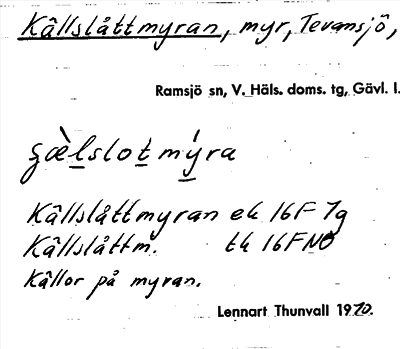 Källslåttmyran, myr, Tevansjö,
Ramsjö sn, V. Häls. doms. tg, Gävl. l.
ʂæ̀lslot mýra
Källslåttmyran ek 16F 7g
Källslåttm. tk 16F NO
Källor på myran.
Lennart Thunvall 1970.